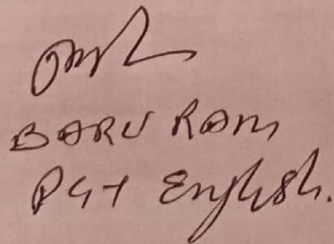 BARU RAM
PGT English.